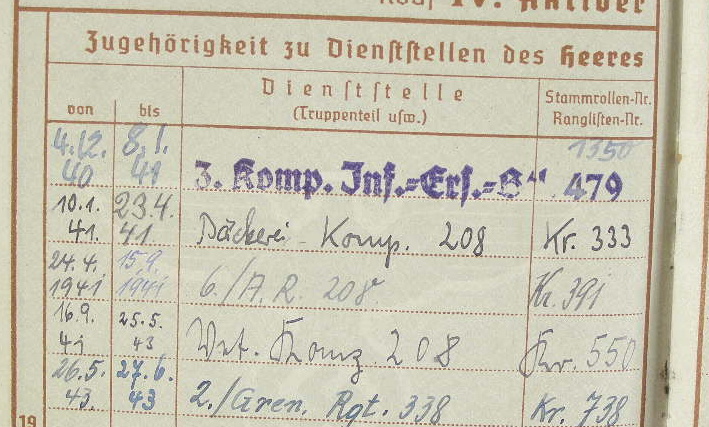 IV. Aktiver
Zugehörigkeit zu Dienststellen des Heeres
von bis Dienststelle Stammrollen-Nr.
(Truppenteil usw.) Ranglisten-Nr.
4.12. 8.1. 1350
40 41 3. Komp. Inf.-Ers.- 479
10.1. 23.4.
41. 41 Bäckerei-Komp. 208 Kr. 333
24.4. 15.9.
1941 1941 6./A.R. 208 Kr. 391
16.9. 25.5.
41 43 Vet. 208 Kr. 550
26.5. 27.6.
43. 43 2./Gren. Rgt. 338 Kr. 738
19